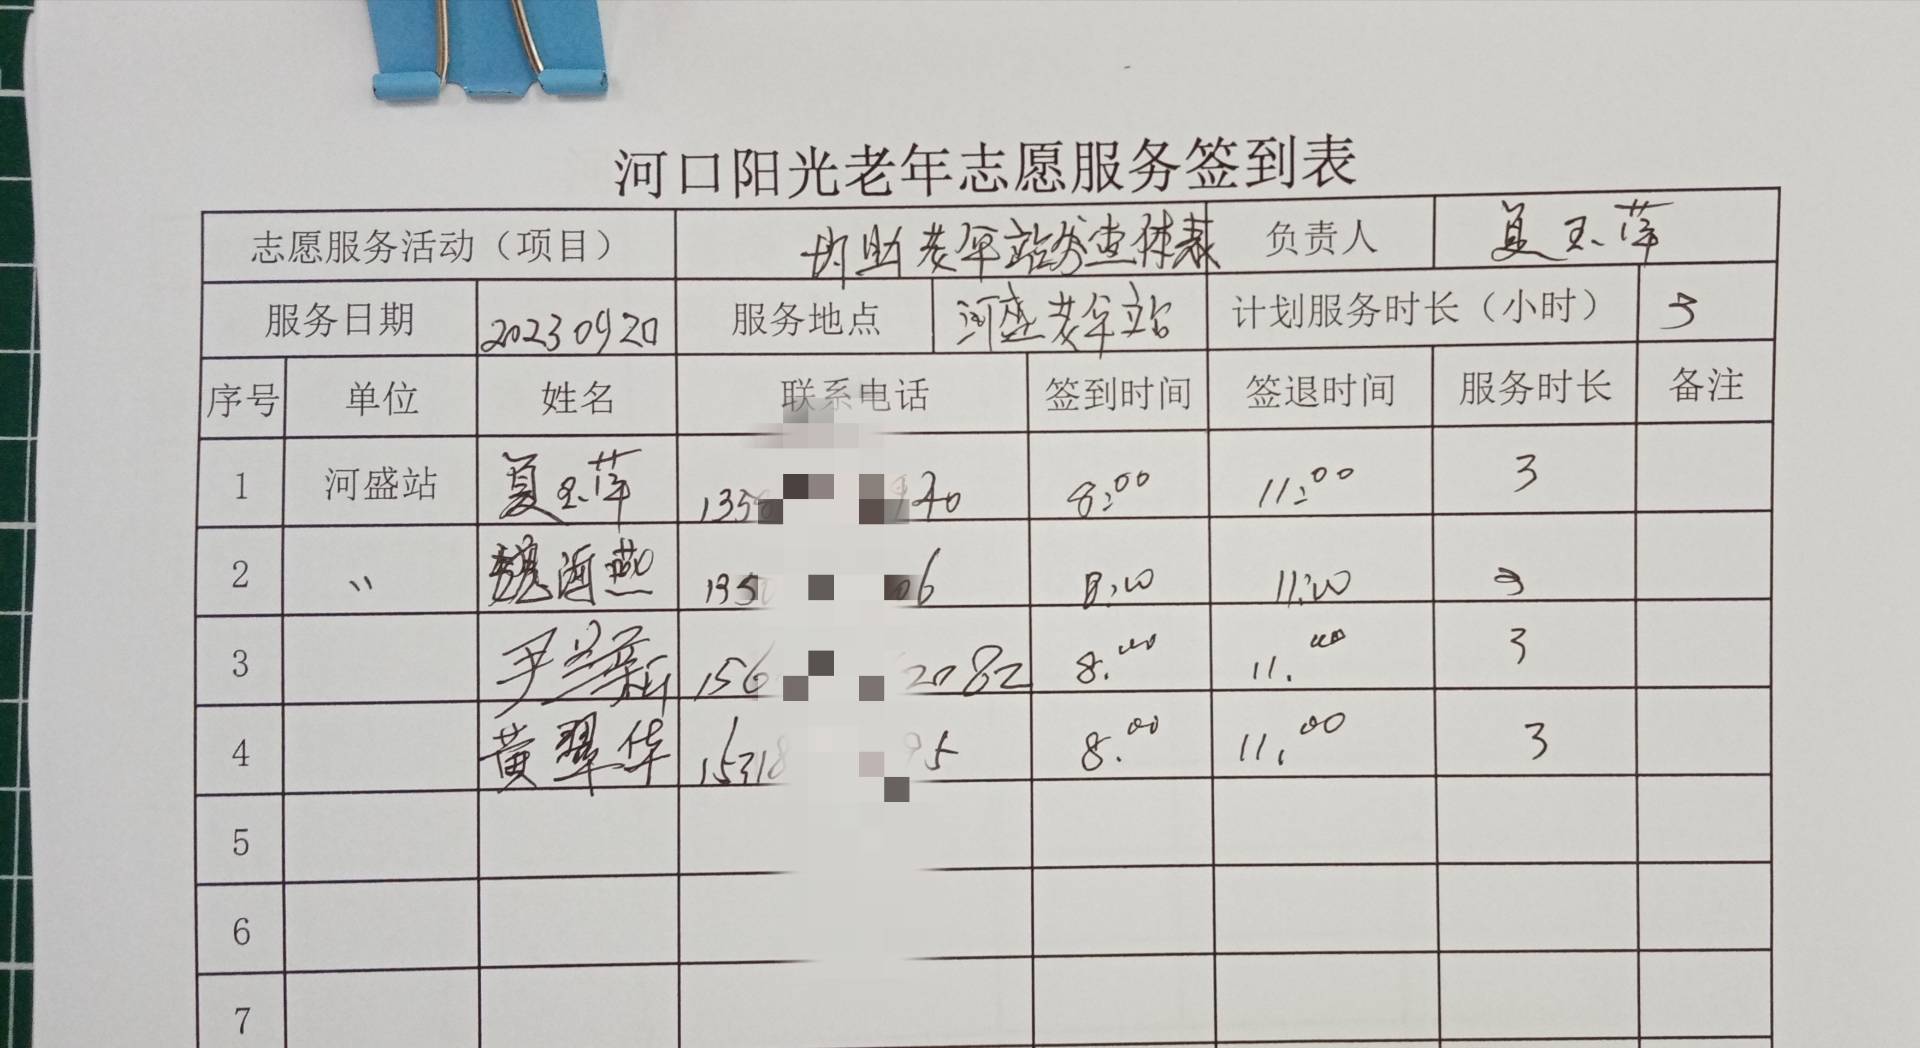 河口阳光老年志愿服务签到表
志愿服务活动（项目） 协助老年站分查体表 负责人 夏玉萍
服务日期 20230920 服务地点 河盛老年站 计划服务时长（小时） 3
序号 单位 姓名 联系电话 签到时间 签退时间 服务时长 备注
1 河盛站 夏玉萍 135 8:00 11:00 3
2 〃 魏海燕 135 06 8:00 11:00 3
3 尹兰新 156 2082 8.00 11.00 3
4 黄翠华 15318 95 8.00 11.00 3
5
6
7